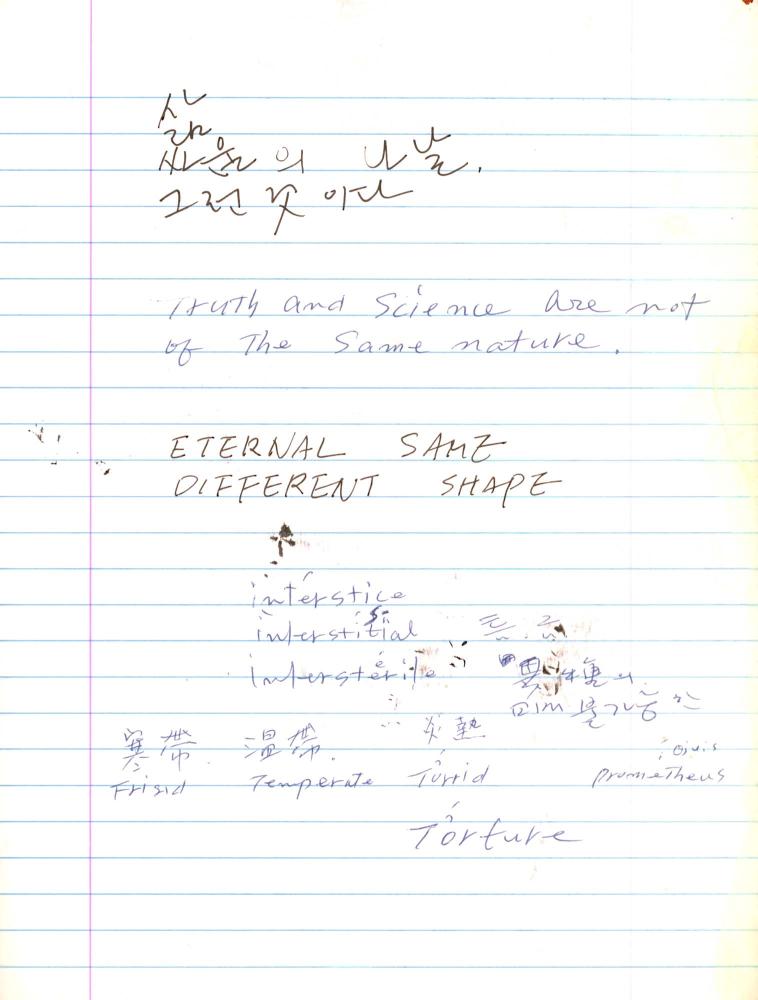 삶
싸움의 나날.
그런 것이다
Truth and Science are not
of The Same nature.
ETERNAL SAME
DIFFERENT SHAPE
interstice
interstitial 틈.
intersterile 異種의
교배 불가능한
寒帶 温帶. 炎熱
Frigid Temperate Torrid Prometheus
Torture